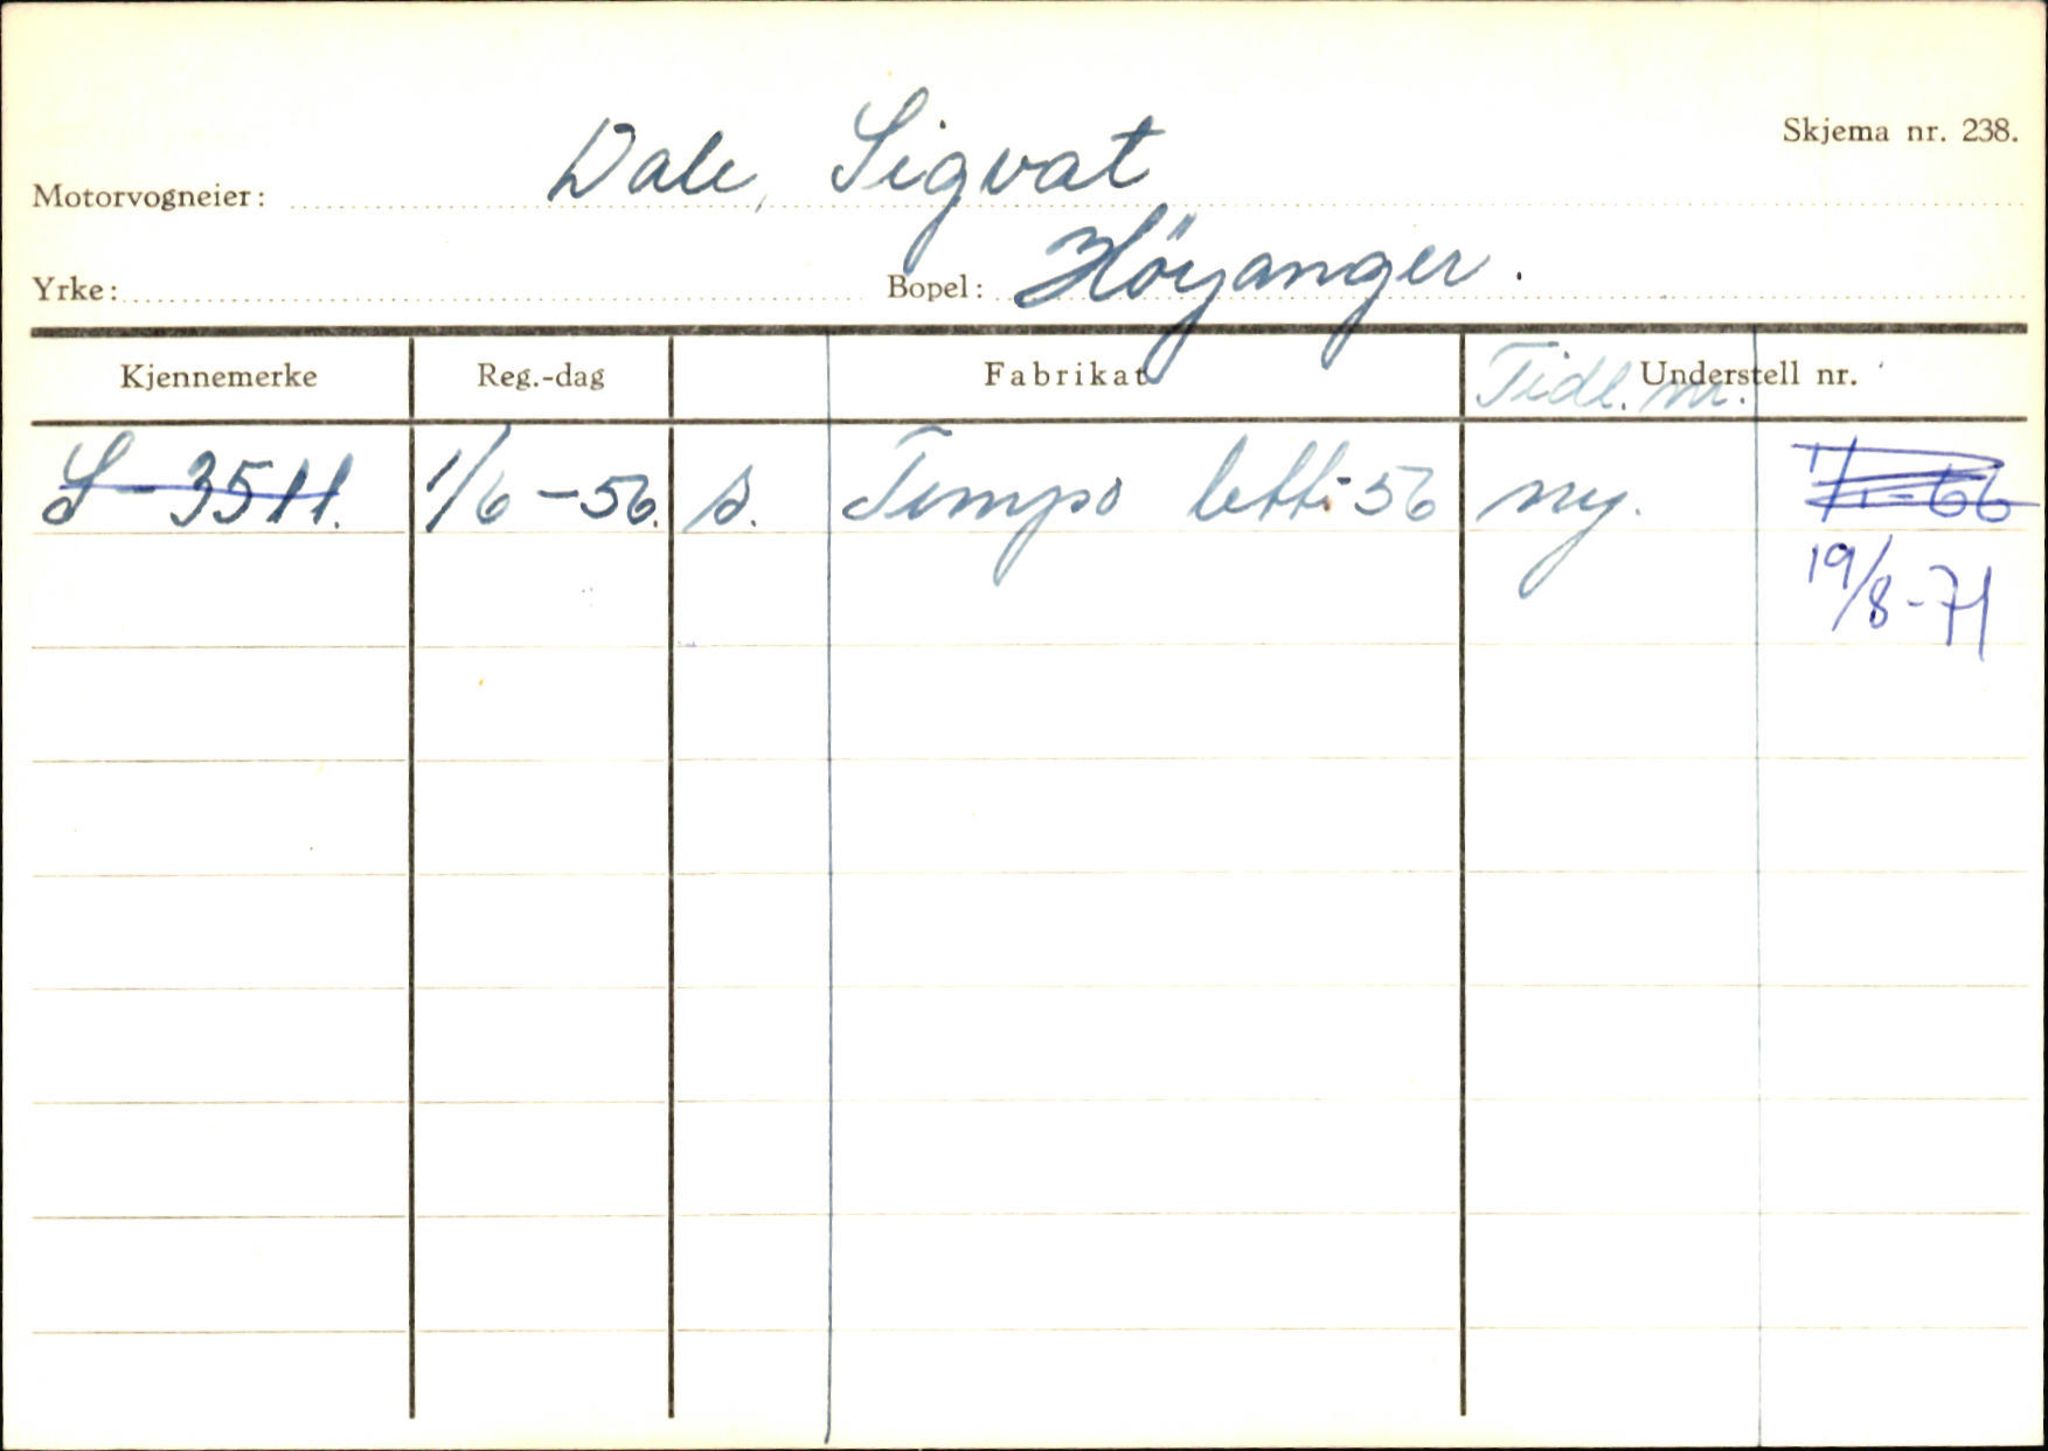 Skjema nr. 238.
Motorvogneier: Dale, Sigvat
Yrke: Bopel: Höyanger.
Kjennemerke Reg.-dag Fabrikat Tidl. nr. Understell nr.
S-3511. 1/6-56. s. Tempo lett-56 ny.
19/8-71